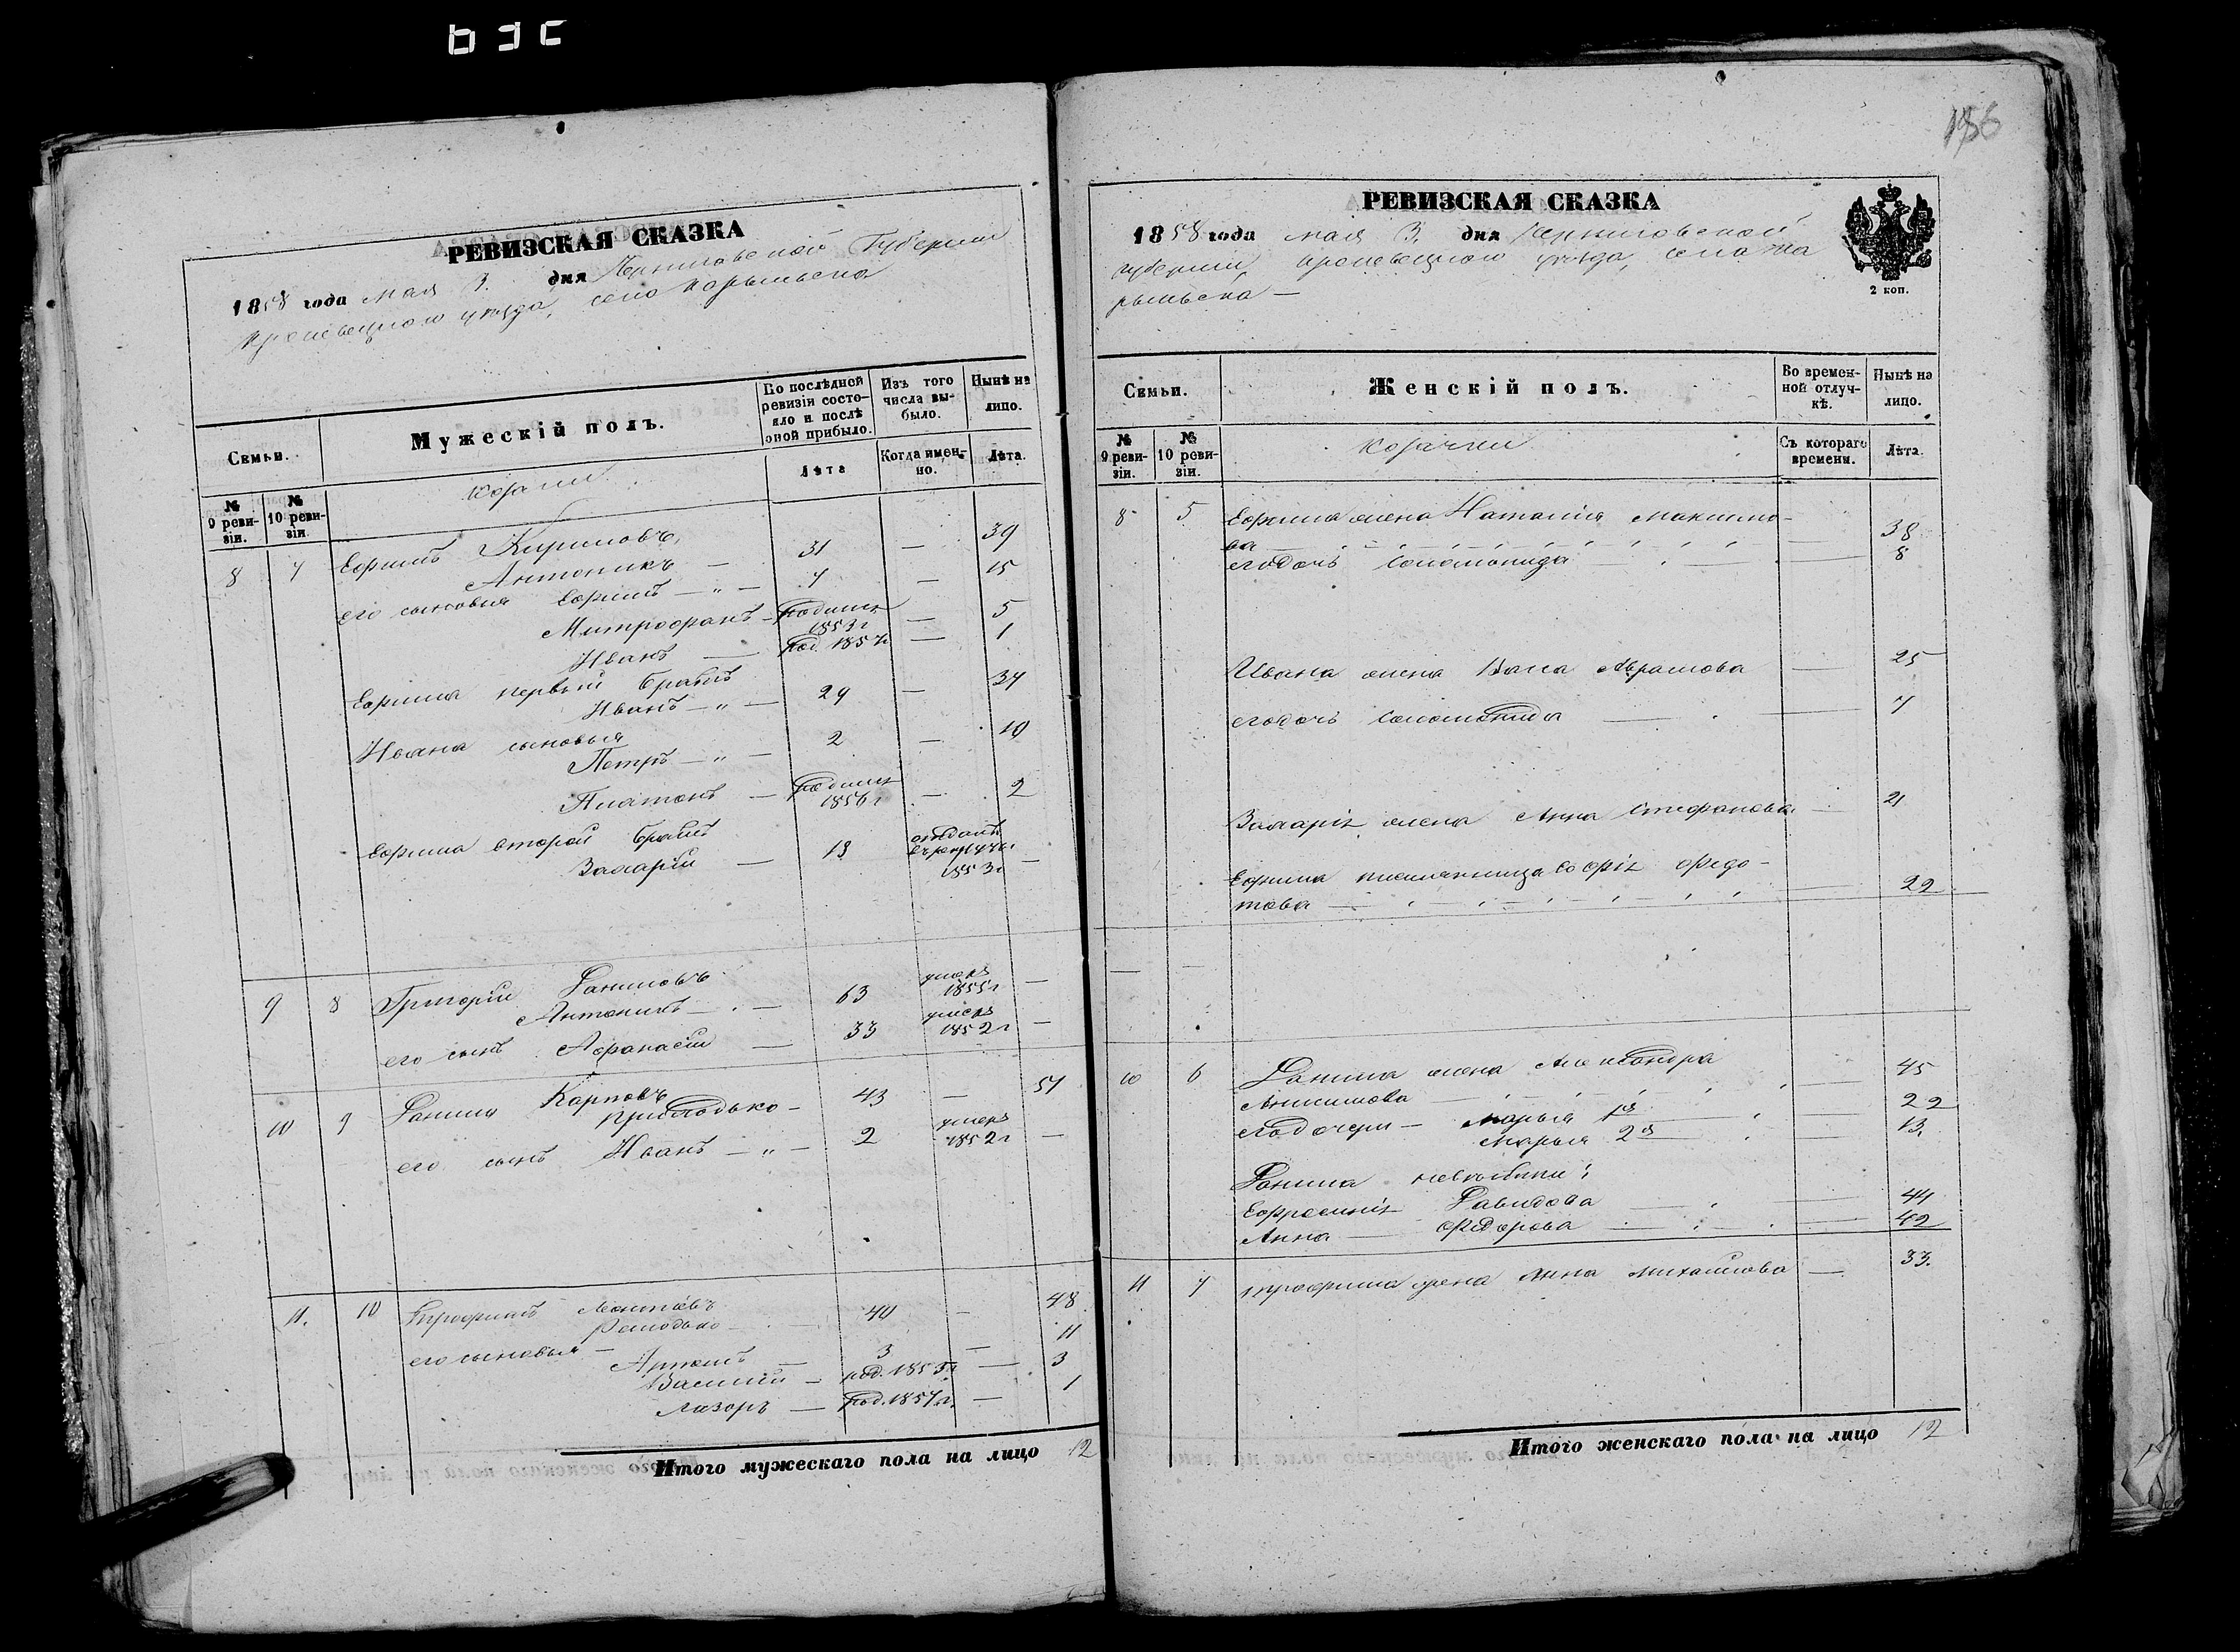 156
РЕВИЗСКАЯ СКАЗКА
1858 года мая 3. дня Черниговской Губернии
Кролевецкого уезда, село
Семьи.
Мужескій полъ.
По послѣдной ревизіи состо-
яло и послѣ
оной прибыло.
Изъ того
числа вы-
было.
Нынѣ на
лицо.
№
9 реви-
зіи.
№
10 реви-
зіи.
Козаки
Лѣта
Когда имен-
но.
Лѣта.
8 7 Ефимъ Кириловъ
Антоникъ — 31 — 39
его сыновья Ефимъ — „ — 7 — 15
Митрофанъ — родился
1853 г — 5
Иванъ — род. 1857 г — 1
Ефима первый братъ
Иванъ — „ — 29 — 37
Ивана сыновья
Петръ — „ — 2 — 10
Платонъ — родился
1856 г — 2
Ефима второй братъ
Захарій — 13 отданъ
въ рекруты
1853 г —
9 8 Григорій Даниловъ
Антоникъ — 63 умеръ
1855 г —
его сынъ Афанасій — 33 умеръ
1852 г —
10 9 Данило Карповъ
Приходько — 43 — 51
его сынъ Иванъ — „ — 2 умеръ
1852 г —
11. 10 Леонтіевъ
— 40 — 48
его сыновья —
Артемъ — 3 — 11
Василій — род. 1855 г — 3
Лазоръ — род. 1857 г. — 1
Итого мужескаго пола на лицо 12
РЕВИЗСКАЯ СКАЗКА
1858 года мая 3. дня Черниговской
губерніи Кролевецкого уезда, села
2 коп.
Семьи.
Женскій полъ.
Во времен-
ной отлуч-
кѣ.
Нынѣ на
лицо.
№
9 реви-
зіи.
№
10 реви-
зіи.
Козачки
Съ котораго
времени.
Лѣта.
8 5 Ефима жена Наталія Максимо-
ва — 38
его дочь Соломонида — 8
Ивана жена Васа Абрамова — 25
его дочь Соломонида — 7
Захарія жена Анна Стефанова — 21
Ефима племянница Софія Федо-
това — 22
10 6 Данила жена Александра
Анисимова — 45
его дочери — Марья 1я — 22
Марья 2я — 13.
Данила невѣстки:
Ефросинія Давидова — 44
Анна — Федорова — 42
11 7 жена Анна Михайлова — 33.
Итого женскаго пола на лицо 12